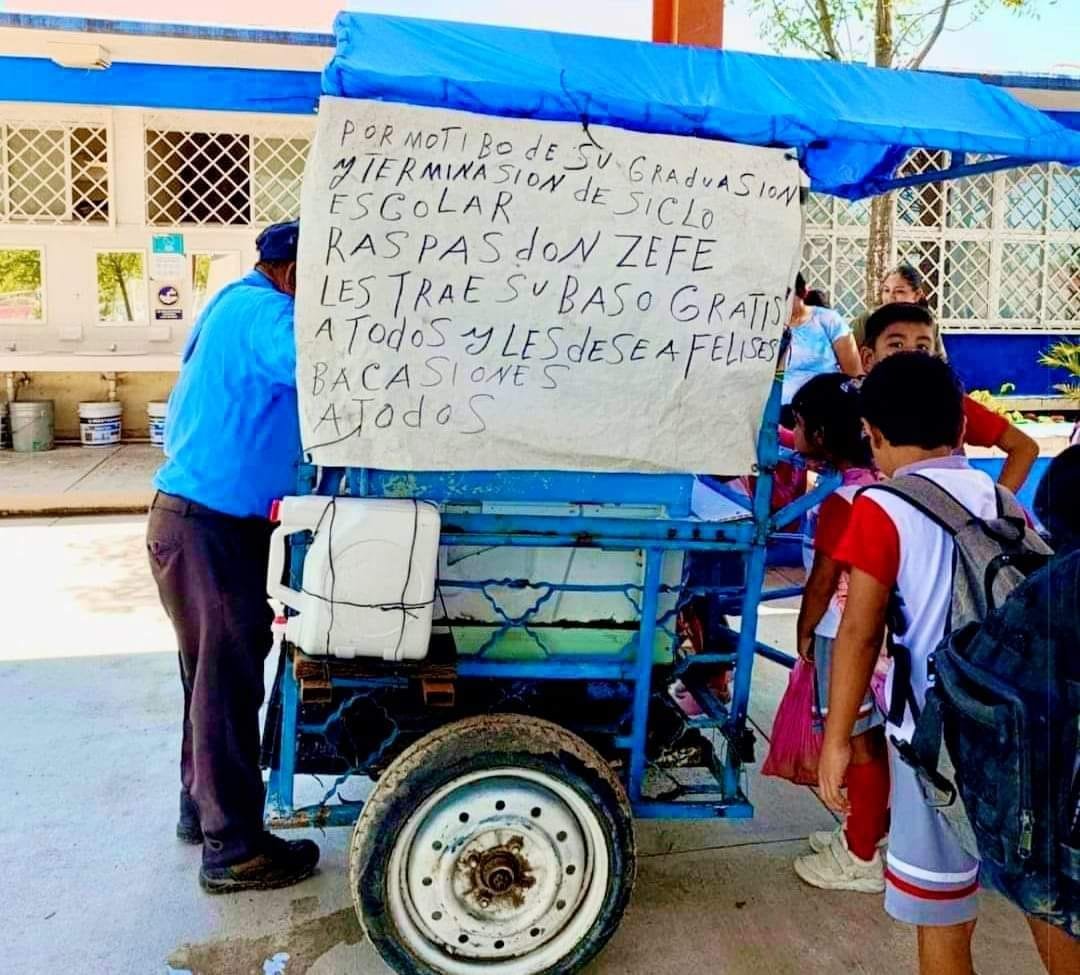 POR MOTIBO de SU GRAdUASION
Y TERMINASION dE SICLO
ESCOLAR
RASPAS dON ZEFE
LES TRAE SU BASO GRATIS
A TOdOS Y LES dESEA FELISES
BACASIONES
A TOdOS